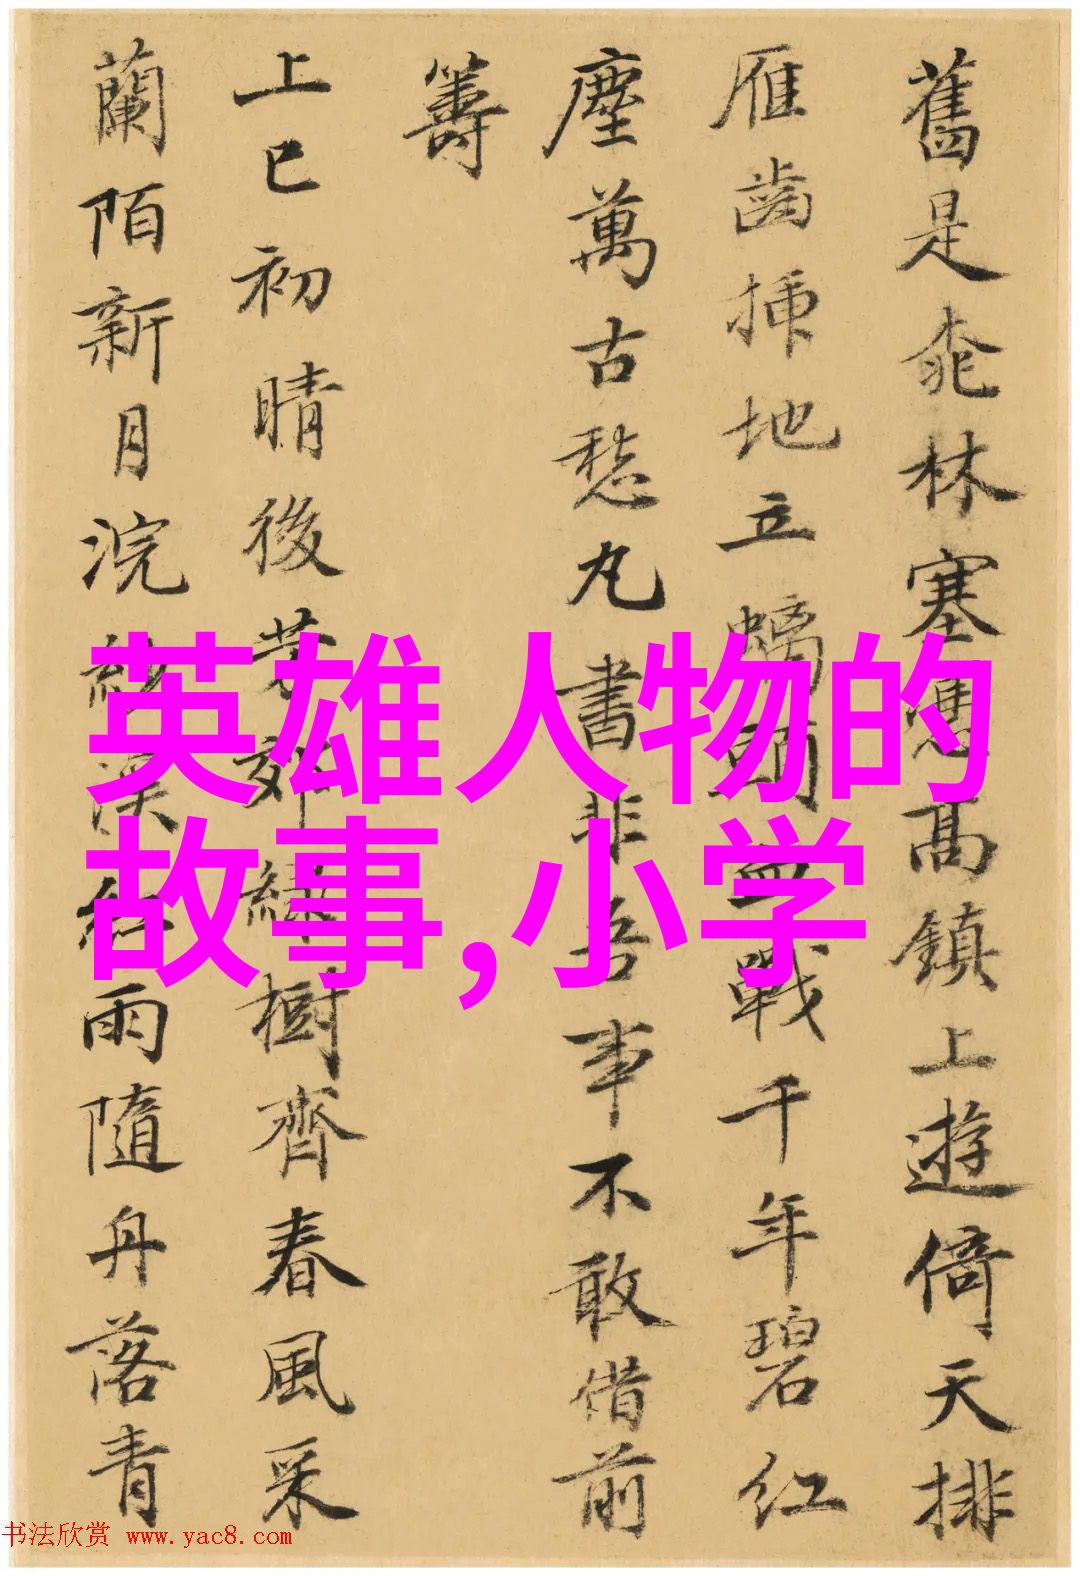 舊是桃林塞憑高鎮上遊倚天排
雁齒插地立螭頭血戰千年碧紅
塵萬古愁丸書非吾事不敢借前
籌
上巳初晴後芳郊綠樹齊春風采
蘭陌新月浣紗溪紅雨隨舟落青
英雄人物的
故事,小学
书法欣赏 www.yac8.com